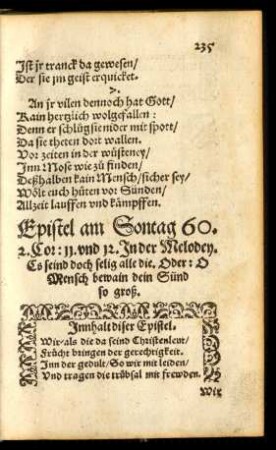 235
Ist jr tranck da gewesen/
Der sie jm geist erquicket.
5.
An jr vilen dennoch hat Gott/
Kain hertzlich wolgefallen:
Denn er schlůg sie nider mit spott/
Da sie theten dort wallen.
Vor zeiten in der wůsteney/
Inn Mose wie zů finden/
Deßhalben kain Mensch/sicher sey/
Wölt euch hüten vor Sünden/
Allzeit lauffen vnd kämpffen.
Epistel am Sontag 60.
2. Cor: 11. vnd 12. In der Melodey.
Es seind doch selig alle die. Oder: O
Mensch bewain dein Sünd
so groß.
Innhalt diser Epistel.
Wir/als die da seind Christenleut/
Frücht bringen der gerechtigkeit.
Inn der gedult/So wir mit leiden/
Vnd tragen die trübsal mit frewden.
Wir